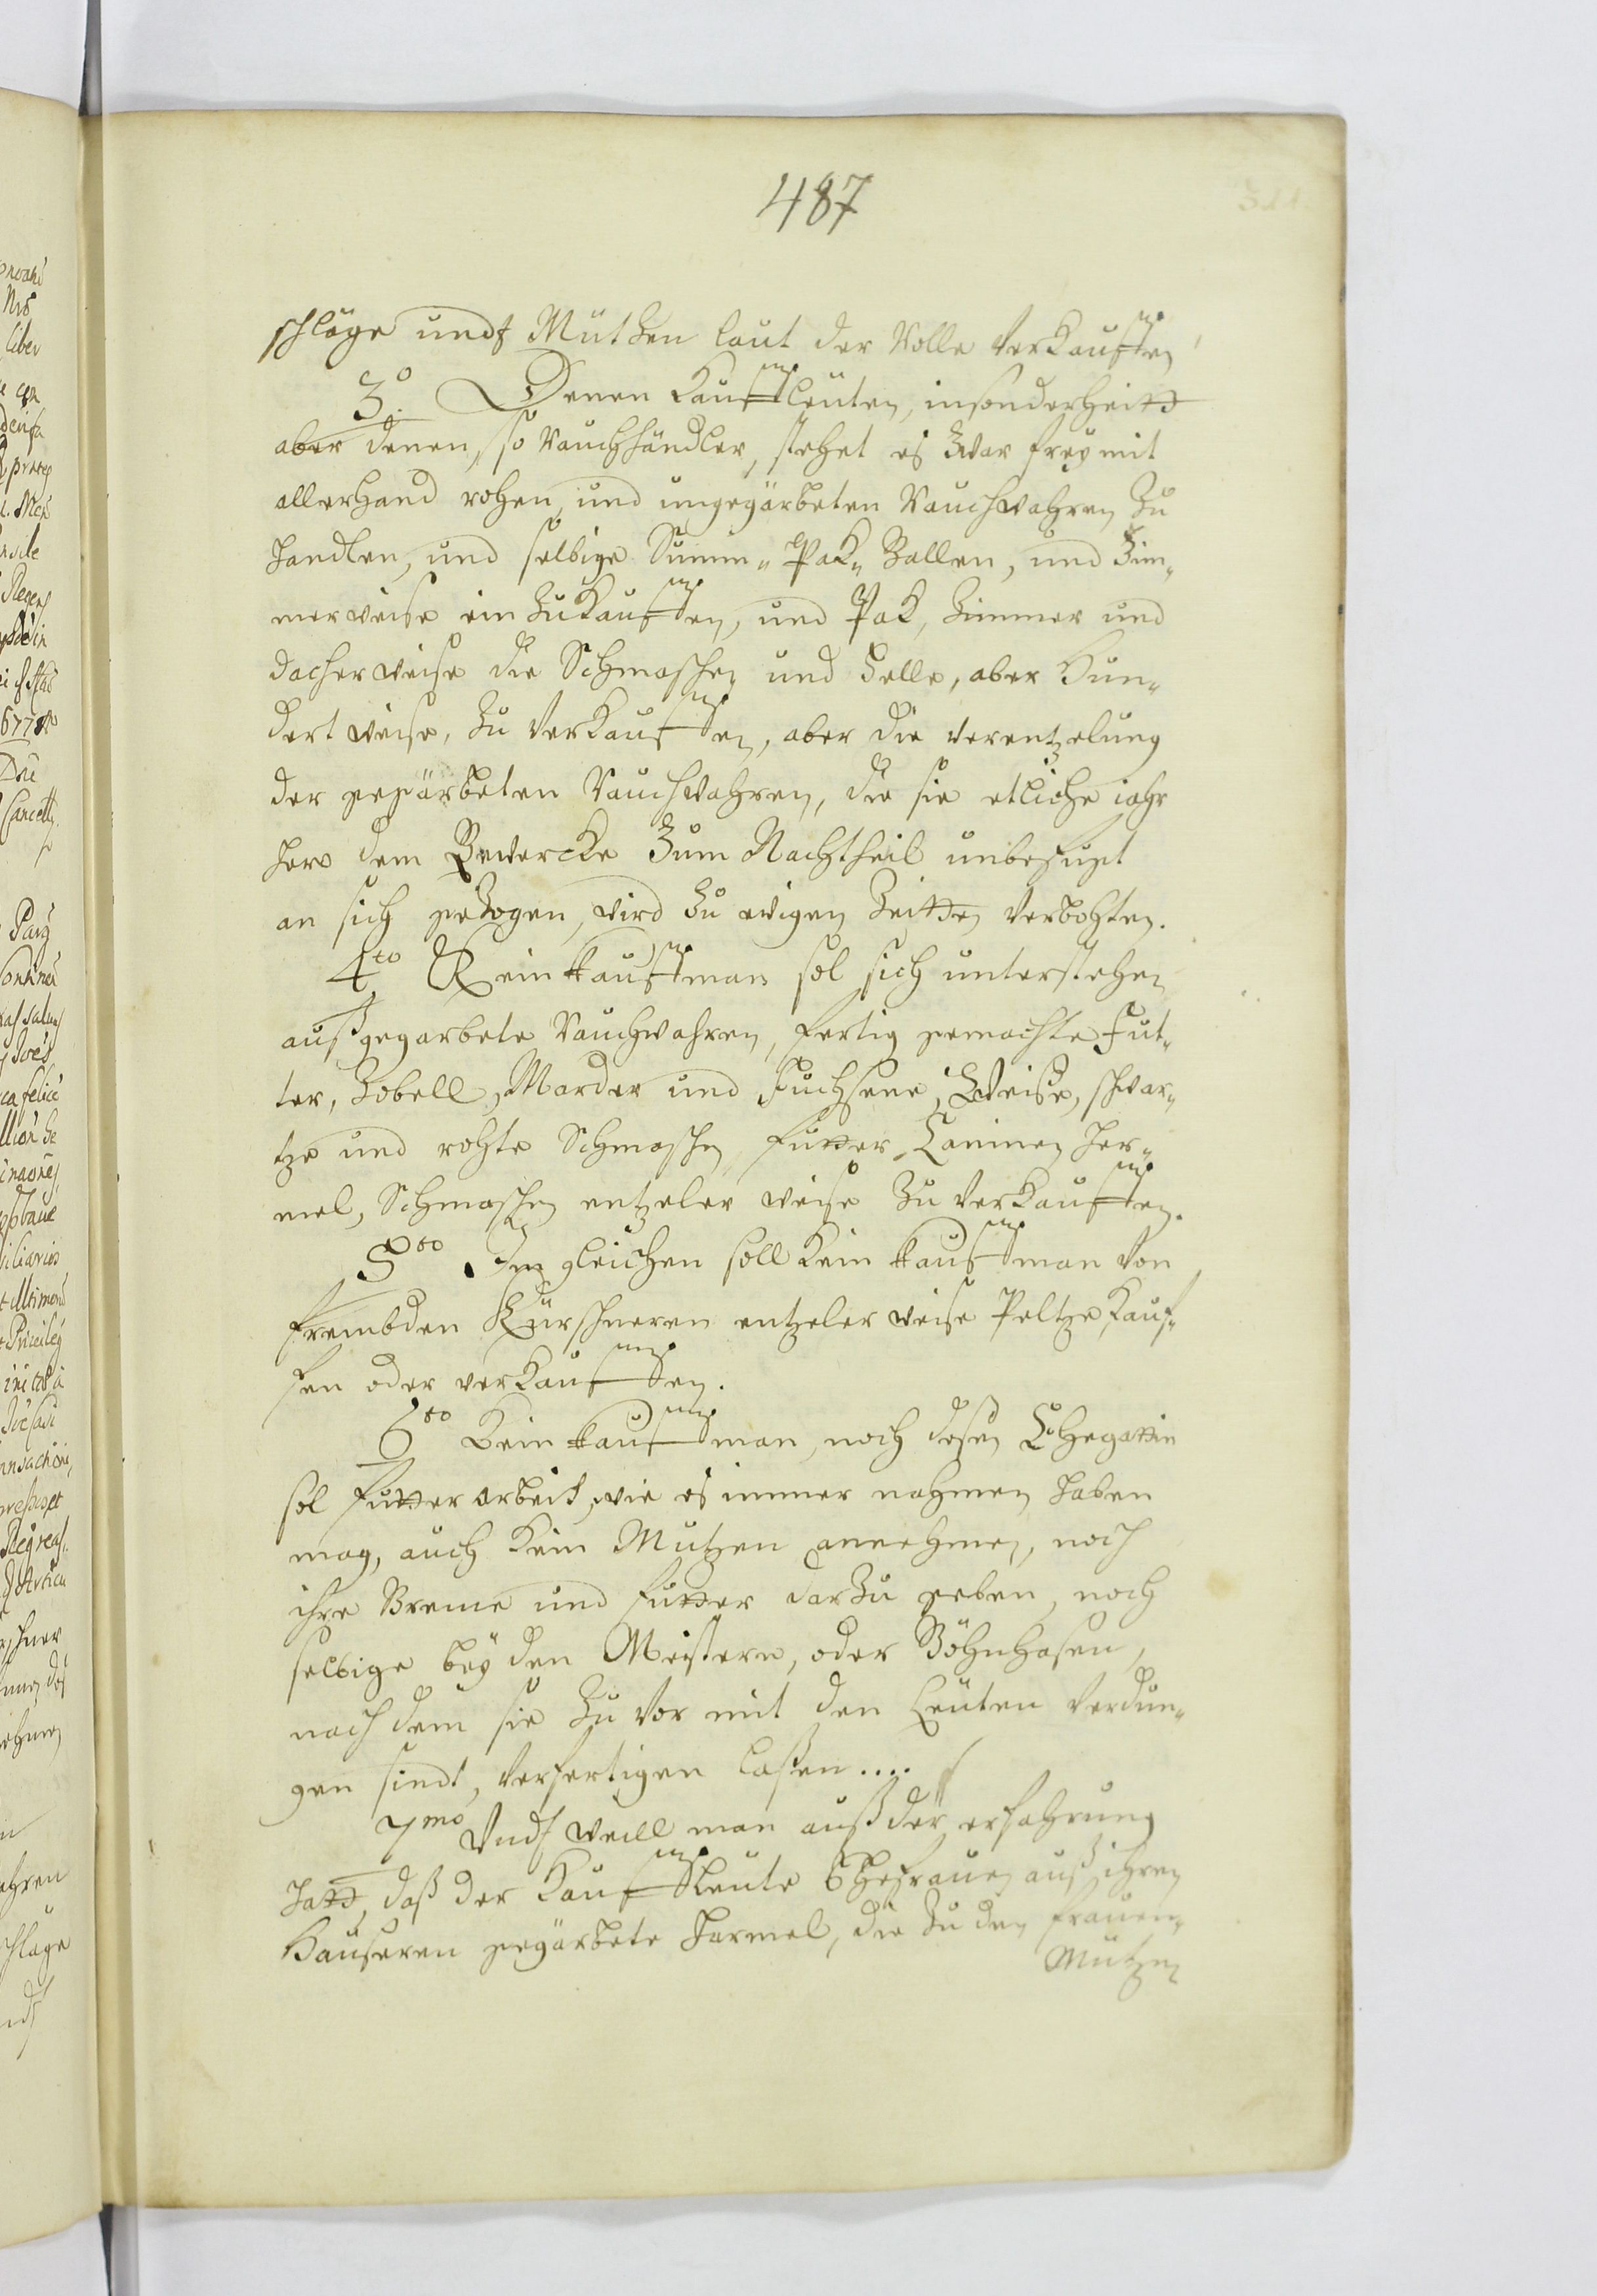 487
schläge undt Mützen laut der Rolle verkauffen
3º. Denen Kauffleüten, insonderheitt
aber denen, so Rauchhändler, stehet es zwar frey mit
allerhand rohen und ungegärbeten Rauchwahren zu
handlen, und selbige Summ„ Pak„ Ballen, und Zim„
merweise ein zukauffen, und Pak, Zimmer und
dacherweise die Schmaschen und Felle, aber Hun„
dertweise, zu verkauffen, aber die verentzelung
der gegärbeten Rauchwahren, die sie etliche iahr
hero dem Gewercke zum Nachtheil unbefugt
an sich gezogen, wird zu ewigen Zeitten verbohten.
4to Kein Kauffman sol sich unterstehen
außgegarbete Rauchwahren, fertig gemachte Fut„
ter, Zobell, Marder und Füchsene, Weiße, schwar„
tze und rohte Schmaschen Futter, Caninen Her„
mel, Schmaschen entzeler weise zu verkauffen.
5to Im gleichen soll kein Kauffman von
frembden Kürschneren entzeler weise Peltze kauf„
fen oder verkauffen.
6to Kein Kauffman, noch deßen Ehegattin
sol Futter arbeit, wie es immer nahmen haben
mag, auch kein Mutzen annehmen, noch
ihre Breme und Futter darzu geben, noch
selbige bey den Meistern, oder Böhnhasen,
nach dem sie zu vor mit den Leüten verdun„
gen sindt, verfertigen laßen....
7mo Undt weill man auß der erfahrung
hatt, daß der Kauffleute Ehefrauen auß ihren
Häuseren gegärbete Harmel, die zu den Frauen„
Mützen